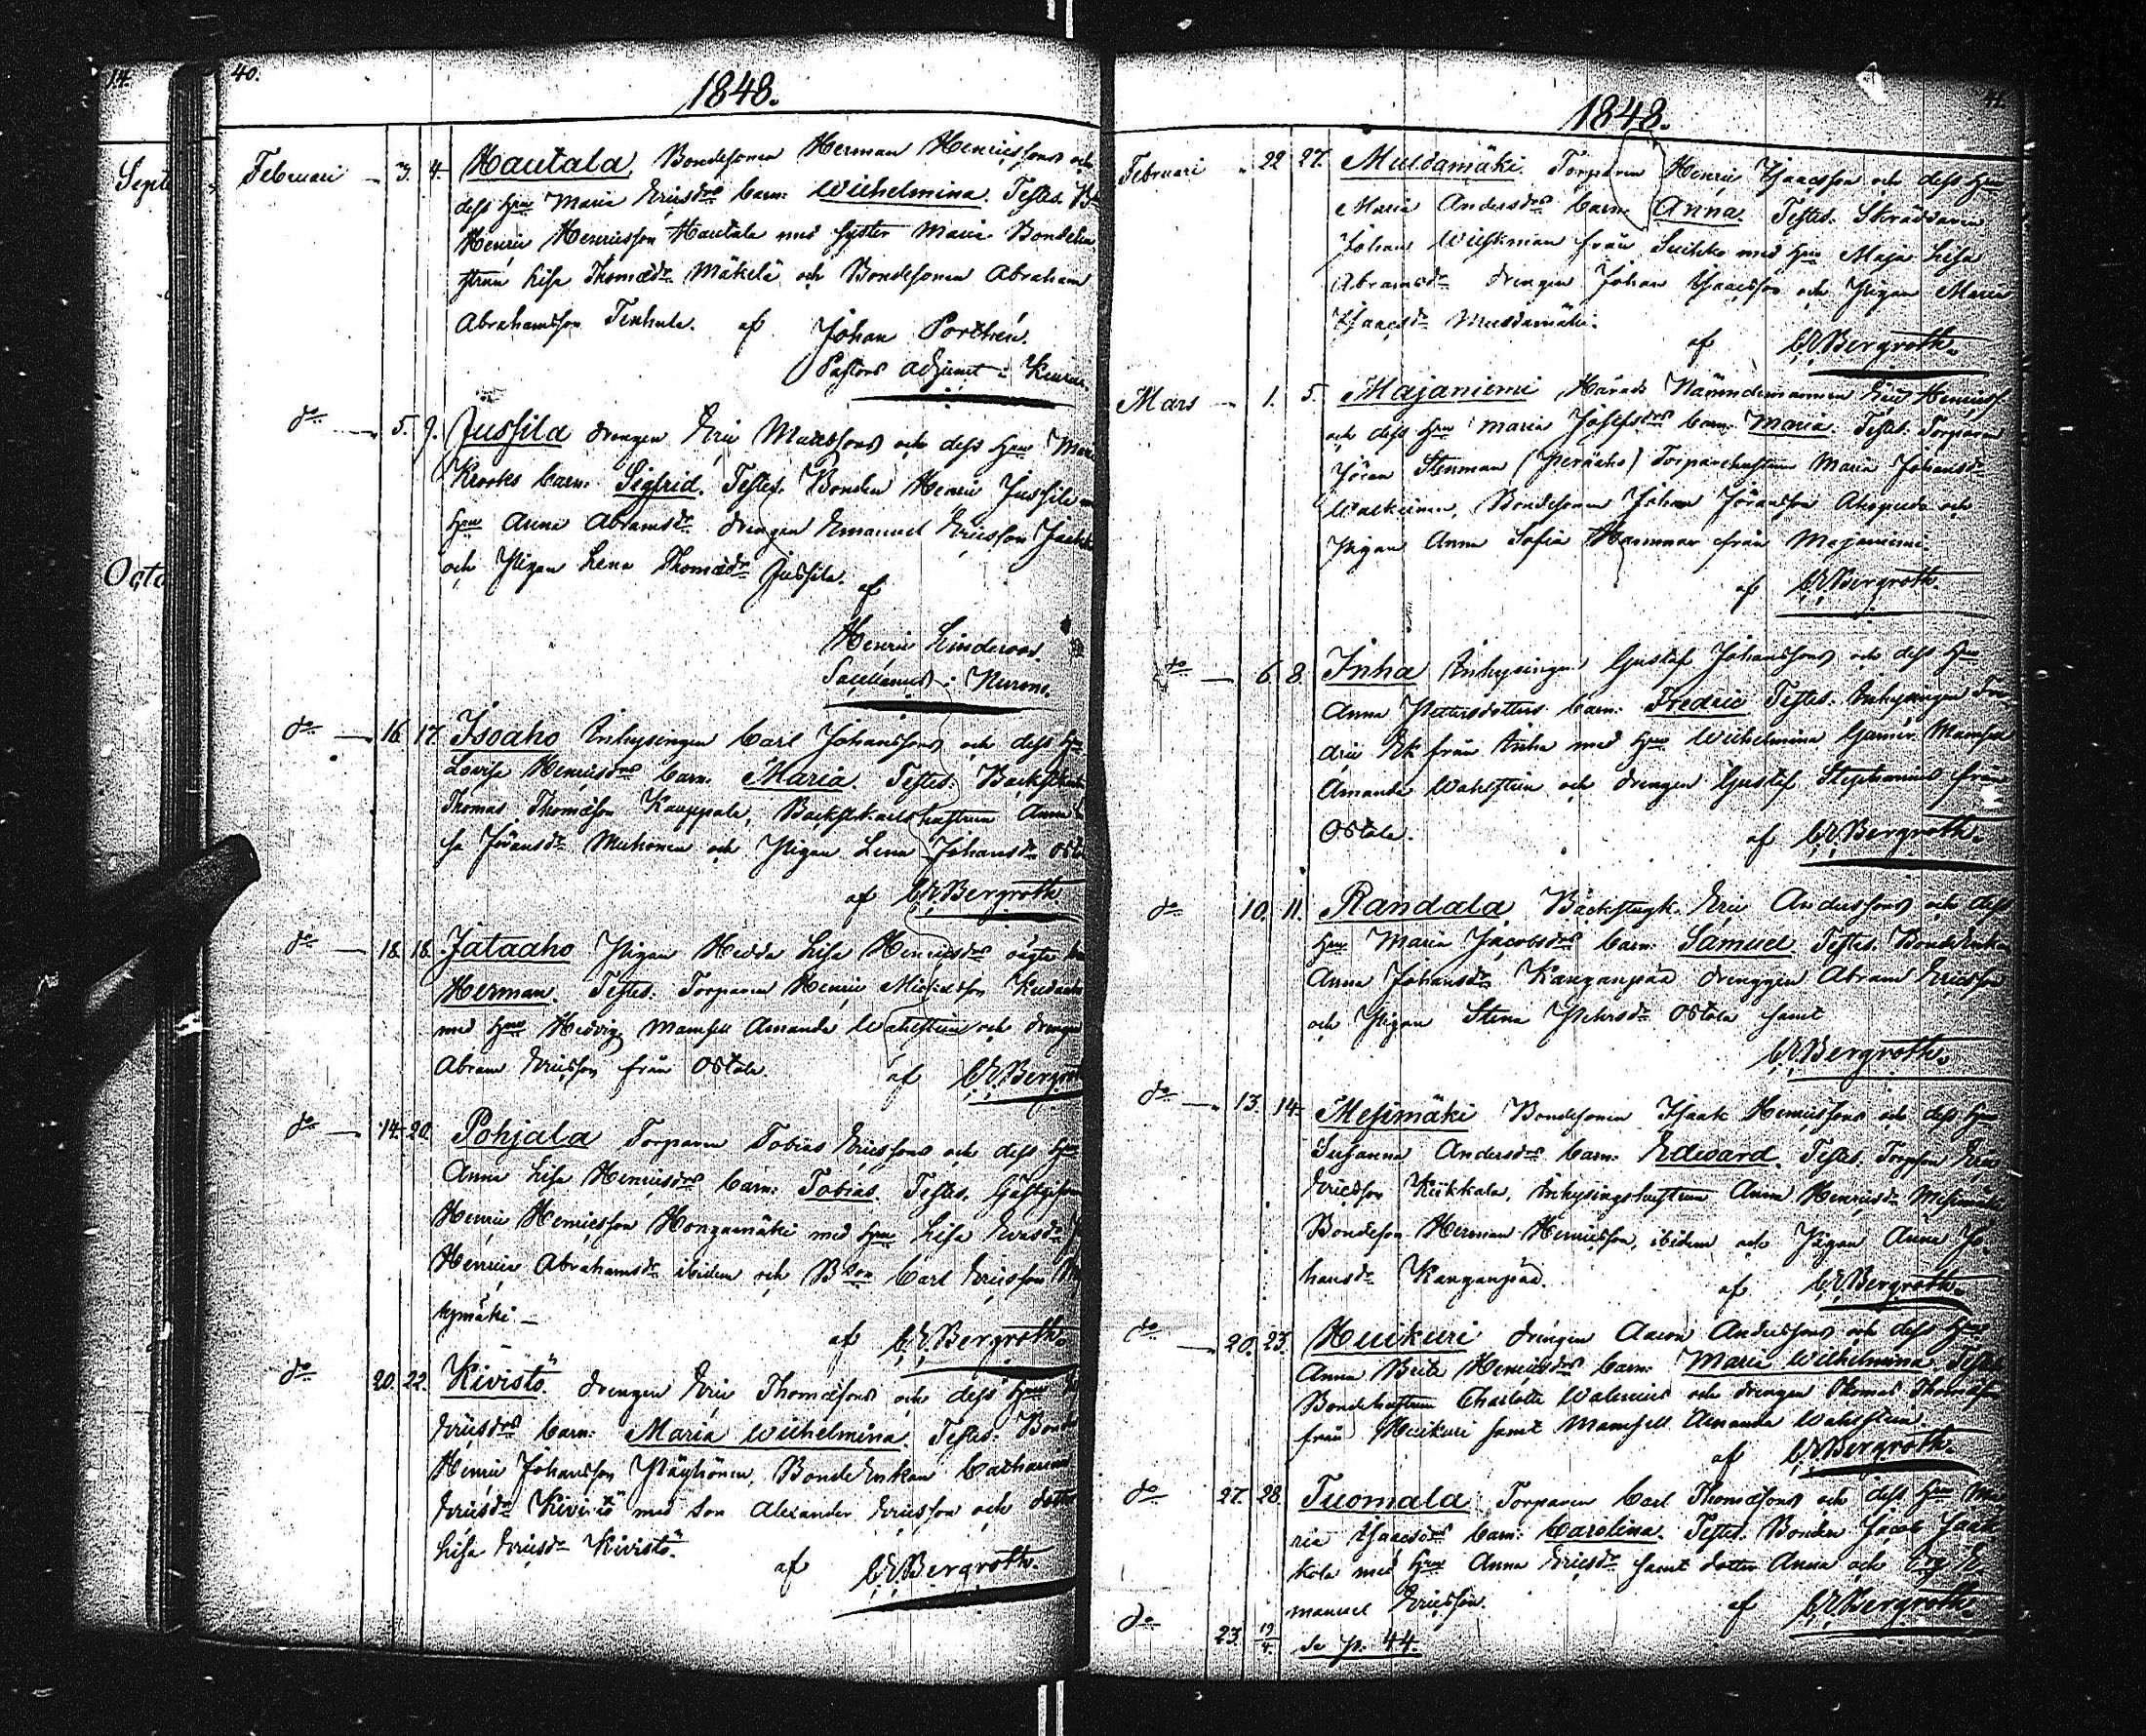 14.
Septe
Octo
40.
1848.
Februari 3. 4. Hautala, Bondesonen Herman Henricssons och
dess Hru Maria Ericsdrs barn: Wilhelmina. Testes. Bd
Henric Henricsson Hautala med syster Maria. Bondehu
strun Lisa Thomædr Mäkelä och Bondesonen Abraham
Abrahamsson Tenhula. af Johan Porthén.
Pastors adjunct i Keuru
do 5. 9. Jussila drengen Eric Mattssons och dess Hru Maria
Krooks barn: Sigfrid. Testes. Bonden Henric Jussila m
Hru Anna Abramsdr drengen Emanuel Ericsson
och Pigan Lena Thomædr Jussila.
af
Henric Linderoos.
Sacellanus i Kurene.
do 16. 17. Isoaho Inhysingen Carl Johanssons och dess Hru
Lovisa Henricsdrs barn. Maria. Testes: Backstu
Thomas Thomæson Kauppala, Backstukarlshustrun Anna Li
sa Jöransdr Muhonen och Pigan Lena Johansdr Osto
af C.E. Bergroth
do 18. 18. Jataaho Pigan Hedda Lisa Henricsdrs oägta
Herman. Testes. Torparen Henric Michelsson
med Hru Hedvig, Mamsell Amanda Wahlstein och drengen
Abram Ericsson från Ostola. af C.E. Bergro
do 14. 20. Pohjala Torparen Tobias Ericssons och dess Hru
Anna Lisa Henricsdrs barn: Tobias. Testes. Gästgifvar
Henric Henricsson Hongamäki med Hru Lisa
Henrica Abrahamsdr ibidem och Bson Carl Ericsson
kymäki
af C.E. Bergroth.
do 20. 22. Kivistö. drengen Eric Thomæsons och dess Hru
Ericsdrs barn: Maria Wilhelmina. Testes: Bond
Henric Johansson Pöyhönen, BondeEnkan Catharina
Ericsdr Kivistö med son Alexander Ericsson och dotter
Lisa Ericsdr Kivistö.
af C.E. Bergroth.
41
1848.
Februari 22 27. Multamäki. Torparen Henric Isaacsson och dess Hru
Maria Andersdrs barn: Anna. Testes. Skräddaren
Johan Wilhman från Suihko med Hru Maja Lisa
Abramsdr drengen Johan Isaacsson och Pigan Maria
Isaacsdr Multamäki.
af C.E. Bergroth.
Mars 1. 5. Majaniemi Härads Nämndemannen Eric Henricss
och dess Hru Maria Josefsdrs barn. Maria. Testes. Torparen
Jöran Stenman (Peräaho) Torparehustrun Maria Johansdr
Walkeinen, Bondesonen Johan Jöransson Ahopelto och
Pigan Anna Sofia Hammar från Majaniemi.
af C.E. Bergroth.
do 6. 8. Inha Inhysingen Gustaf Johanssons och dess Hru
Anna Pettersdotters barn: Fredric Testes: Inhysingen Fre-
dric Ek från Inha med Hru Wilhelmina Mamsell
Amanda Wahlstein och drengen Gustaf Stephanus från
Ostola. af C.E. Bergroth.
do 10. 11. Randala, Backstugk. Eric Anderssons och dess
Hru Maria Jacobsdrs barn: Samuel Testes. BondeEnkan
Anna Johansdr Kanganpää drenggen Abram Ericsson
och Pigan Stina Pehrsdr Ostola samt
C.E. Bergroth.
do 13. 14. Mesimäki Bondesonen Isaak Henricssons och dess Hru
Susanna Andersdrs barn: Edward. Testes. Torpson Eric
Ericsson Kiikkala, Inhysingshustrun Anna Henricsdr Mesimäki
Bondeson Herman Henricsson, ibidem och Pigan Anna Jo-
hansdr Kanganpää. af C.E. Bergroth.
do 20. 23. Huikuri drengen Aaron Anderssons och dess Hru
Anna Brita Henricsdrs barn: Maria Wilhelmina. Testes
Bondehustrun Charlotta Walenius och drengen Thomas Thomæson
från Huikuri samt Mamsell Amanda Wahlstein.
af C.E. Bergroth.
do 27. 28. Tuomala, Torparen Carl Thomæsons och dess Hru Ma
ria Isaacsdrs barn: Carolina. Testes. Bonden Jacob Jaak
kola med Hru Anna Ericsdr samt dotter Anna och Drg E-
manuel Ericsson. af C.E. Bergroth.
do 23. 19/4. se p. 44.